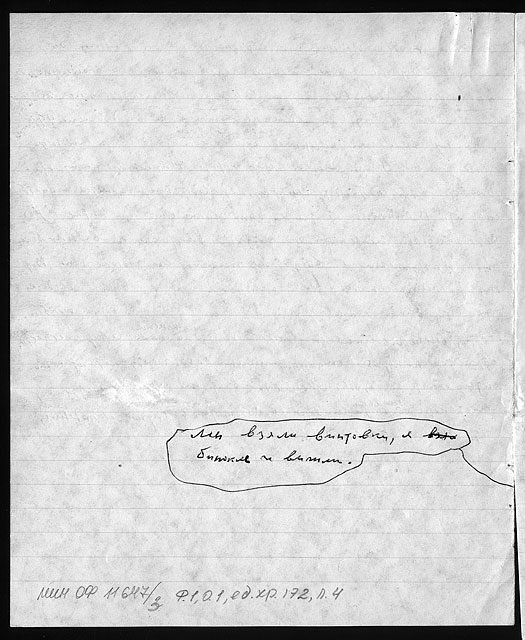 Мы взяли винтовки, я взял
бинокль и вышли.
МИН ОФ 11647/3 Ф.1, О.1, ед.хр.172, л.4